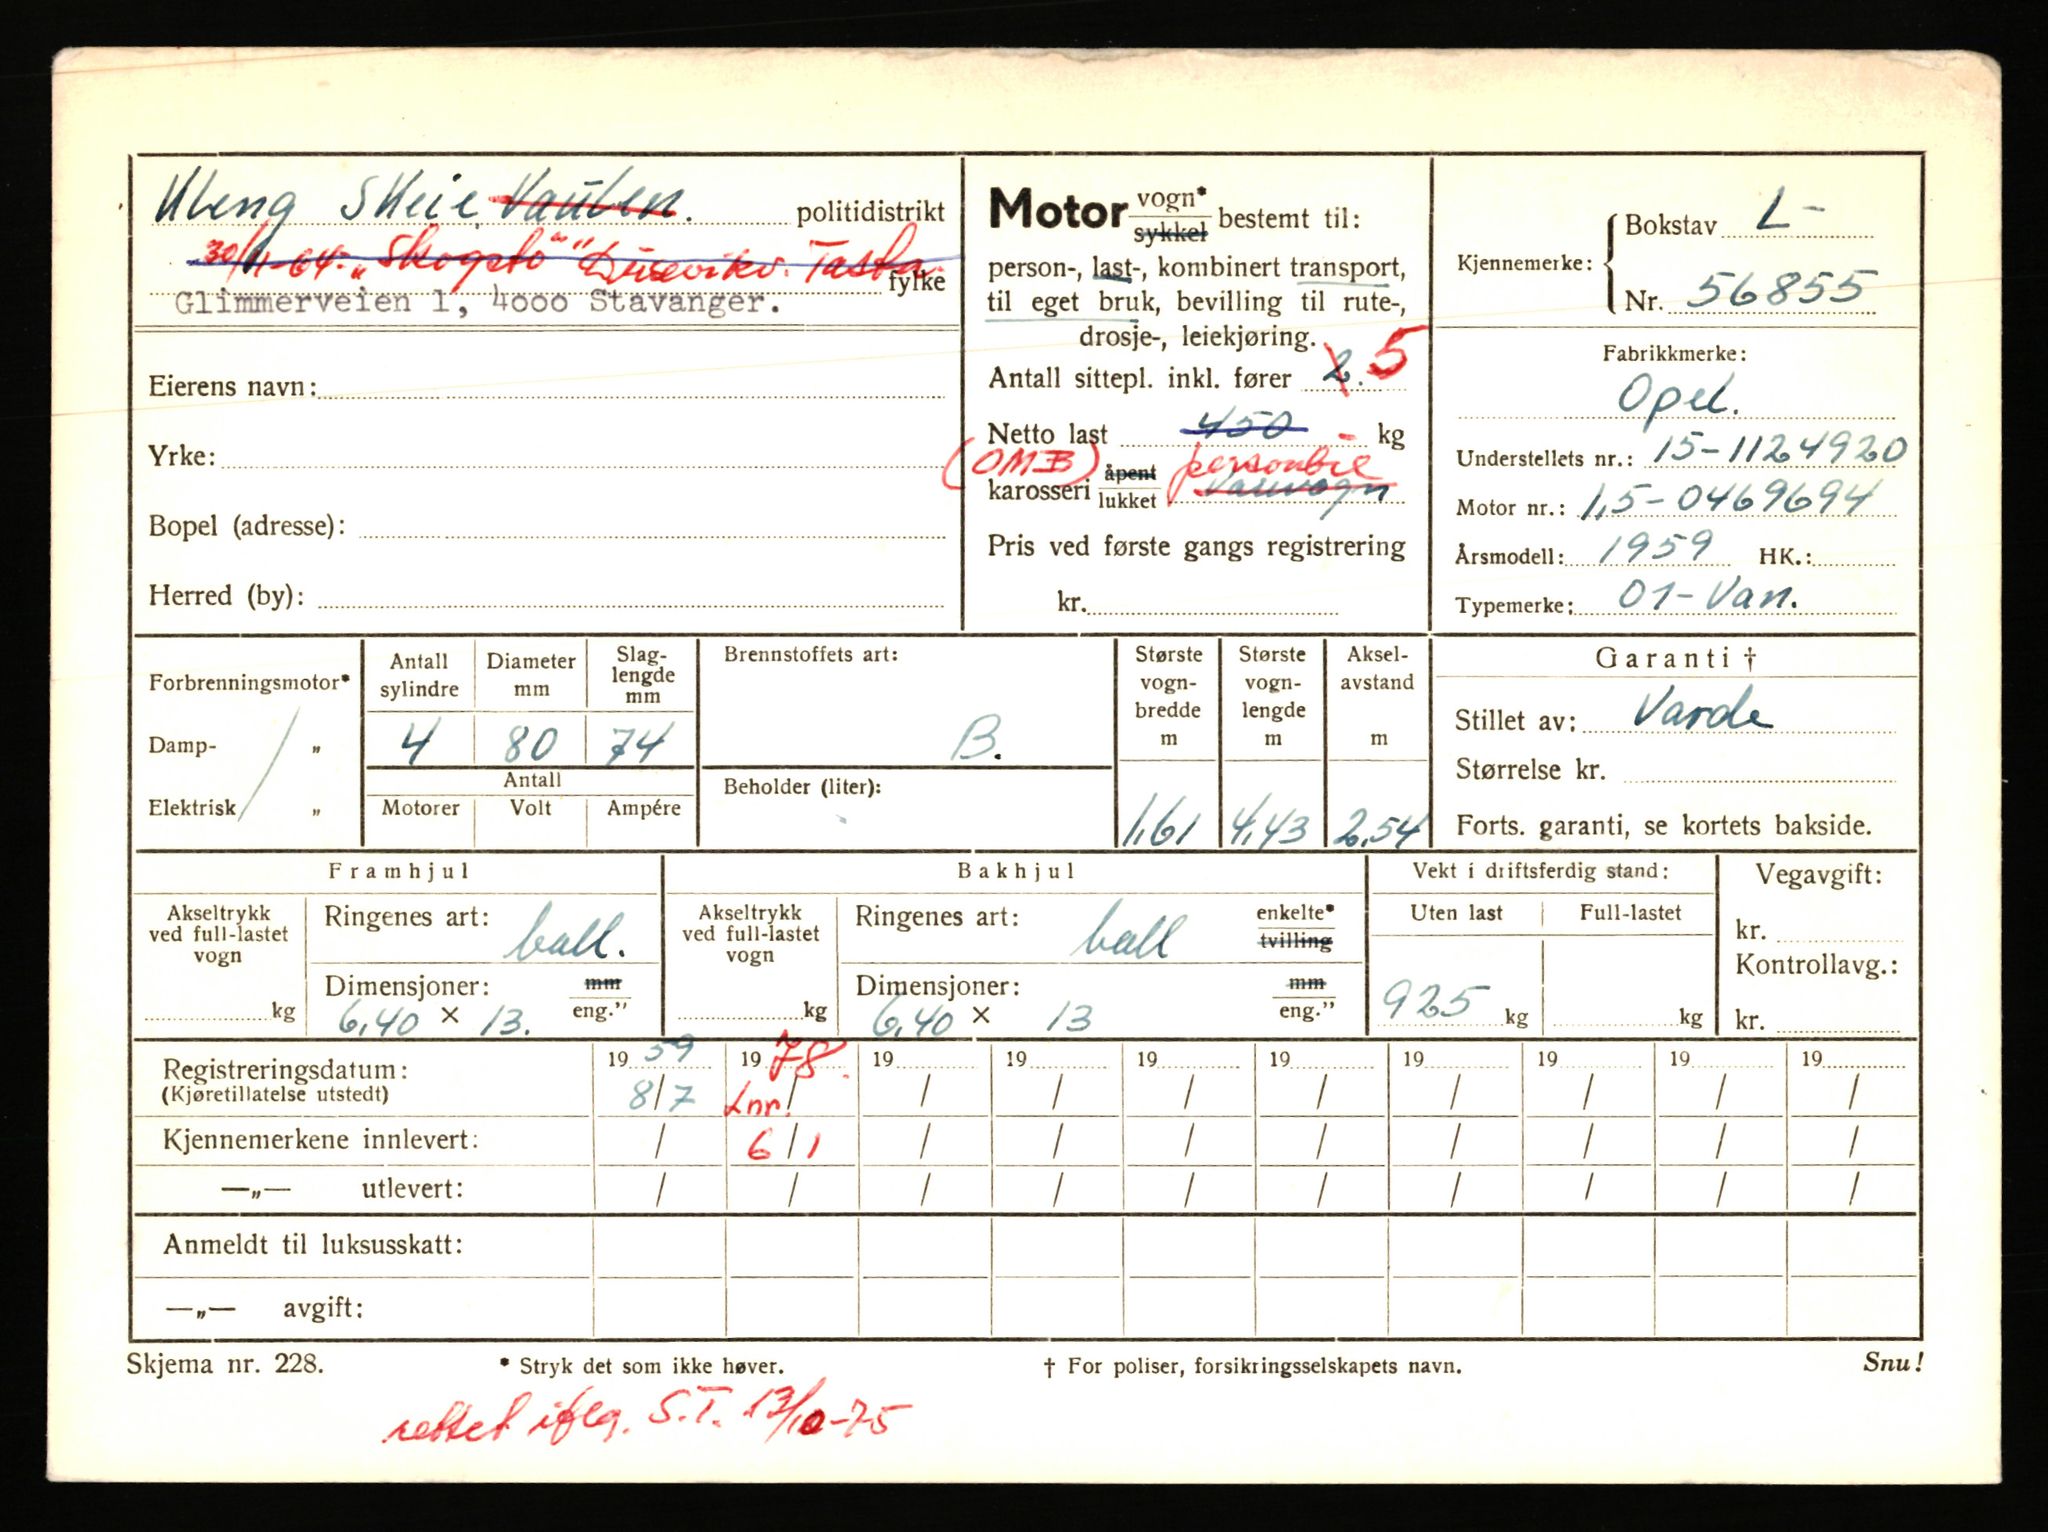 Skeie Vaulen. politidistrikt
30/11-64. "Skogstö" Tasta.
fylke
Glimmerveien 1, 4000 Stavanger.
Eierens navn:
Yrke:
Bopel (adresse):
Herred (by):
Motor vogn* sykkel bestemt til:
person-, last-, kombinert transport,
til eget bruk, bevilling til rute-,
drosje-, leiekjøring.
Antall sittepl. inkl. fører 2. 5
Netto last 450 kg
(OMB) personbil
karosseri åpent lukket Varevogn
Pris ved første gangs registrering
kr.
Kjennemerke: Bokstav L-
Nr. 56855
Fabrikkmerke:
Opel.
Understellets nr.: 15-1124920
Motor nr.: 1,5-0469694
Årsmodell: 1959 HK.:
Typemerke: 01-Van.
Forbrenningsmotor*
Damp- "
Elektrisk "
Antall sylindre Diameter mm Slag-lengde mm
4 80 74
Antall
Motorer Volt Ampére
Brennstoffets art:
B.
Beholder (liter):
Største vogn-bredde m Største vogn-lengde m Aksel-avstand m
1,61 4,43 2,54
Garanti †
Stillet av: Varde
Størrelse kr.
Forts. garanti, se kortets bakside.
Framhjul
Akseltrykk ved full-lastet vogn
kg
Ringenes art: ball.
Dimensjoner: mm
6,40 × 13. eng."
Bakhjul
Akseltrykk ved full-lastet vogn
kg
Ringenes art: ball enkelte* tvilling
Dimensjoner: mm
6,40 × 13 eng."
Vekt i driftsferdig stand:
Uten last Full-lastet
925 kg kg
Vegavgift:
kr.
Kontrollavg.:
kr.
Registreringsdatum: 19 59 19 78. 19 19 19 19 19 19 19 19
(Kjøretillatelse utstedt) 8/7 Lnr. / / / / / / / / /
Kjennemerkene innlevert: / 6/1 / / / / / / / /
—„— utlevert: / / / / / / / / / /
Anmeldt til luksusskatt:
—„— avgift:
Skjema nr. 228. * Stryk det som ikke høver. † For poliser, forsikringsselskapets navn. Snu!
rettet iflg. S.T. 13/10-75